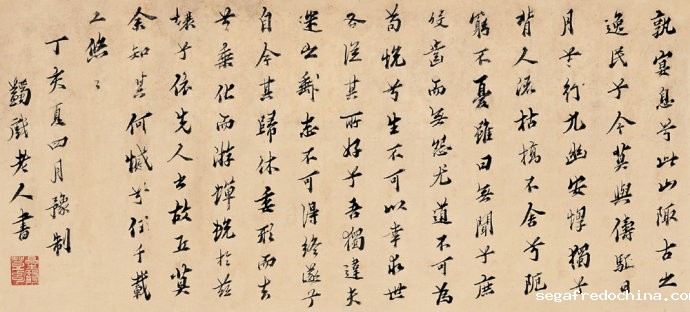 孰宴息兮此山陬古之
逸民兮今莫與儔駈日
月兮行九幽安惸獨兮
背人流枯槁不舍兮阨
窮不憂雖曰無聞兮庶
沒齒而無怨尤道不可為
苟悅兮生不可以幸求世
各從其所好兮吾獨違夫
迷之郵志不可得終遂兮
自今其歸休委形而去
兮乘化而游蟬蛻於茲
壤兮依先人之故丘莫
余知其何憾兮付千載
之悠〻
丁亥夏四月豫制
蠲戲老人書
www.segafredochina.com